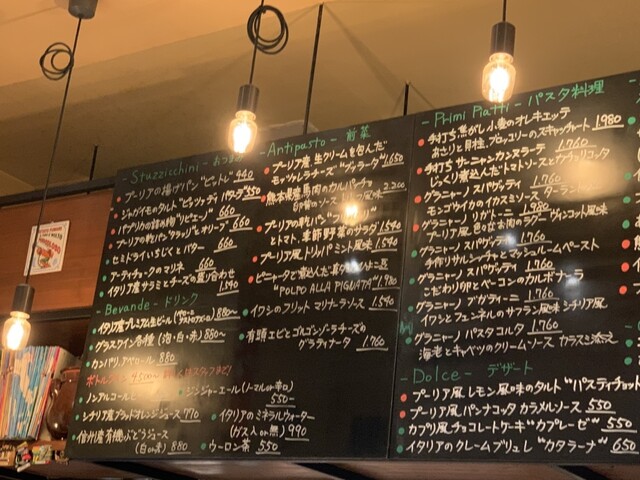 - Stuzzicchini - おつまみ
プーリアの揚げパン "ピットレ" 440
ジャガイモのタルト "ピッツァ ディ パターテ" 550
パプリカの詰め物 "リピエーノ" 660
プーリアの乾パン "タラッリ" と オリーブ 660
セミドライいちじくと バター 660
アーティチョークのマリネ 660
イタリア産サラミとチーズの盛り合わせ 1.540
Bevande - ドリンク
イタリア産プレミアム生ビール 880~
グラスワイン各種 (泡・白・赤) 880~
カンパリ,アペロール 880
ボトルワイン 4500~
ノンアルコールビール
ジンジャーエール(ノーマルor辛口) 550
シチリア産ブラッドオレンジジュース 770
信州産有機ぶどうジュース
(白or赤) 880
イタリアのミネラルウォーター
(ガス入or無) 990
ウーロン茶 550
- Antipasto - 前菜
プーリア産 生クリームを包んだ
モッツァレラチーズ "ブッラータ" 1.650
熊本県産馬肉のカルパッチョ 2.200
プーリアの乾パン
とトマト、季節野菜のサラダ 1.540
プーリア風トリッパ ミント風味 1.540
ピニャータで煮込んだ真ダコ
"POLPO ALLA PIGNATA" 1.980
イワシのフリット マリナーラソース 1.540
有頭エビとゴルゴンゾーラチーズの
グラティナータ 1.760
- Primi Piatti - パスタ料理
手打ち 焦がし小麦のオレキエッテ
あさりと 肘柱、ブロッコリーのスキャッチャート 1.980
手打ち サーニャンカンヌラーテ 1.760
じっくり煮込んだトマトソースとカチョリコッタ
グラニャーノ スパゲッティ 1.760
モンゴウイカのイカスミソース ターラント
グラニャーノ リガトーニ 1.980
プーリア風 色々なお肉のラグー ヴィンコット風味
グラニャーノ スパゲッティ 1.760
手作りサルシッチャとマッシュルームペースト
グラニャーノ スパゲッティ 1.760
こだわり卵とベーコンのカルボナーラ
グラニャーノ ブカティーニ 1.760
イワシとフェンネルのサフラン風味 シチリア風
グラニャーノ パスタコルタ 1.760
海老とキャベツのクリームソース カラスミ添え
- Dolce - デザート
プーリア風 レモン風味のタルト "パスティチョット
プーリア風 パンナコッタ カラメルソース 550
カプリ風チョコレートケーキ "カプレーゼ" 550
イタリアのクレームブリュレ "カタラーナ" 650